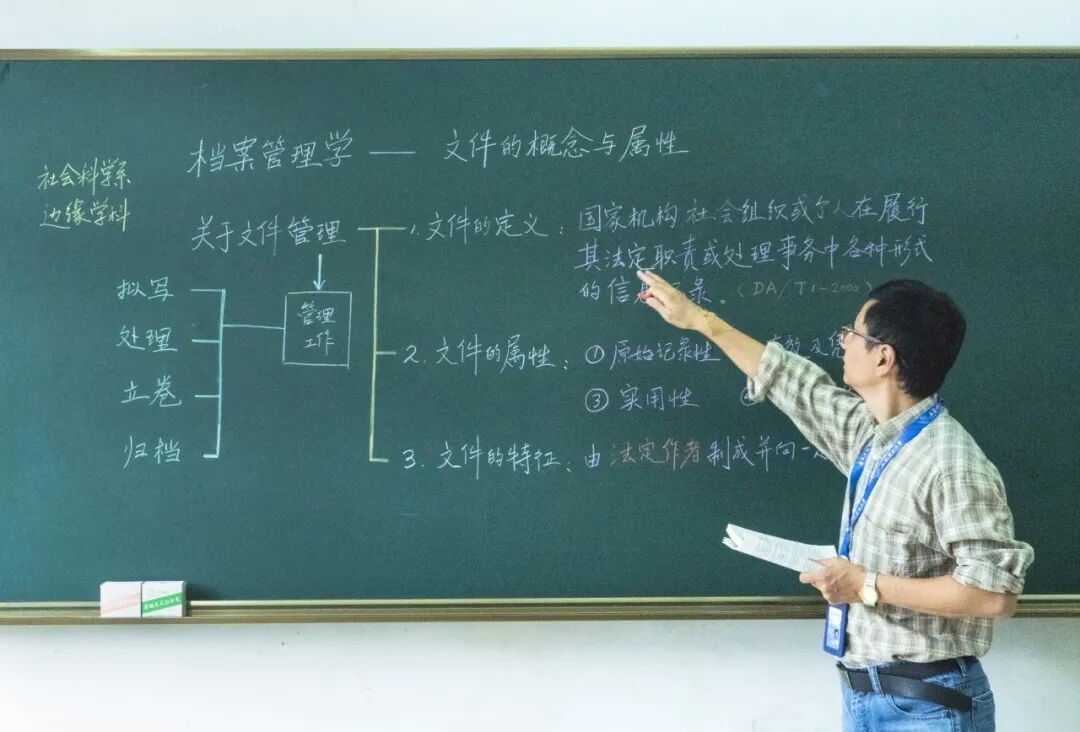 档案管理学 — 文件的概念与属性
社会科学系
边缘学科
关于文件管理
管理
工作
拟写
处理
立卷
归档
1.文件的定义：国家机构 社会组织或个人在履行
其法定职责或处理事务中各种形式
的信 录。（DA/T1-2000）
2.文件的属性：①原始记录性
③实用性
3.文件的特征：由法定作者制成并向一